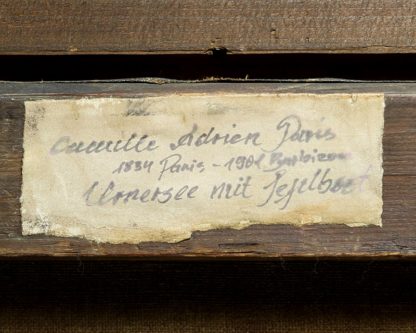 Camille Adrien Paris
1834 Paris - 1901 Barbizon
Urnersee mit Segelboot